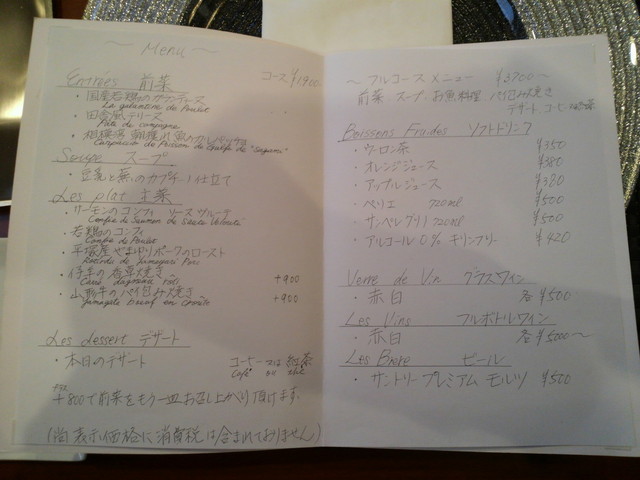 ~ Menu ~
Entrées 前菜 コース ¥1,900
・国産若鶏のガランティーヌ
La galantine de Poulet
・田舎風テリーヌ
Pâté de campagne
・相模湾 朝獲れ魚のカルパッチョ
Carpaccio de Poisson de "Sagami"
Soupe スープ
・豆乳と蕪のカプチーノ仕立て
Les plat 主菜
・サーモンのコンフィ ソースヴルーテ
Confie de Saumon de Sauce Velouté
・若鶏のコンフィ
Confie de Poulet
・平塚産やまゆりポークのロースト
Porc
・仔羊の香草焼き +900
Carré
・山形牛のパイ包み焼き +900
Yamagata boeuf en croûte
Les dessert デザート
・本日のデザート コーヒー又は紅茶
Café ou thé
+800で前菜をもう一皿お召し上がり頂けます
(尚 表示価格に消費税は含まれておりません)
~ フルコースメニュー ¥3700~
前菜 スープ お魚料理 パイ包み焼き
デザート、コーヒー又は紅茶
Boissons Fruides ソフトドリンク
・ウーロン茶 ¥350
・オレンジジュース ¥480
・アップルジュース ¥380
・ペリエ 720ml ¥500
・サンペレグリノ 720ml ¥500
・アルコール0% キリンフリー ¥420
Verre de Vin グラスワイン
・赤白 各¥500
Les Vins フルボトルワイン
・赤白 各¥5000~
Les Biere ビール
・サントリープレミアムモルツ ¥500